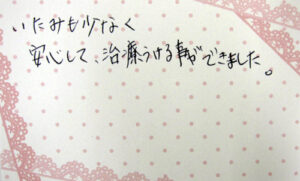 いたみも少なく
安心して、治療うける事ができました。